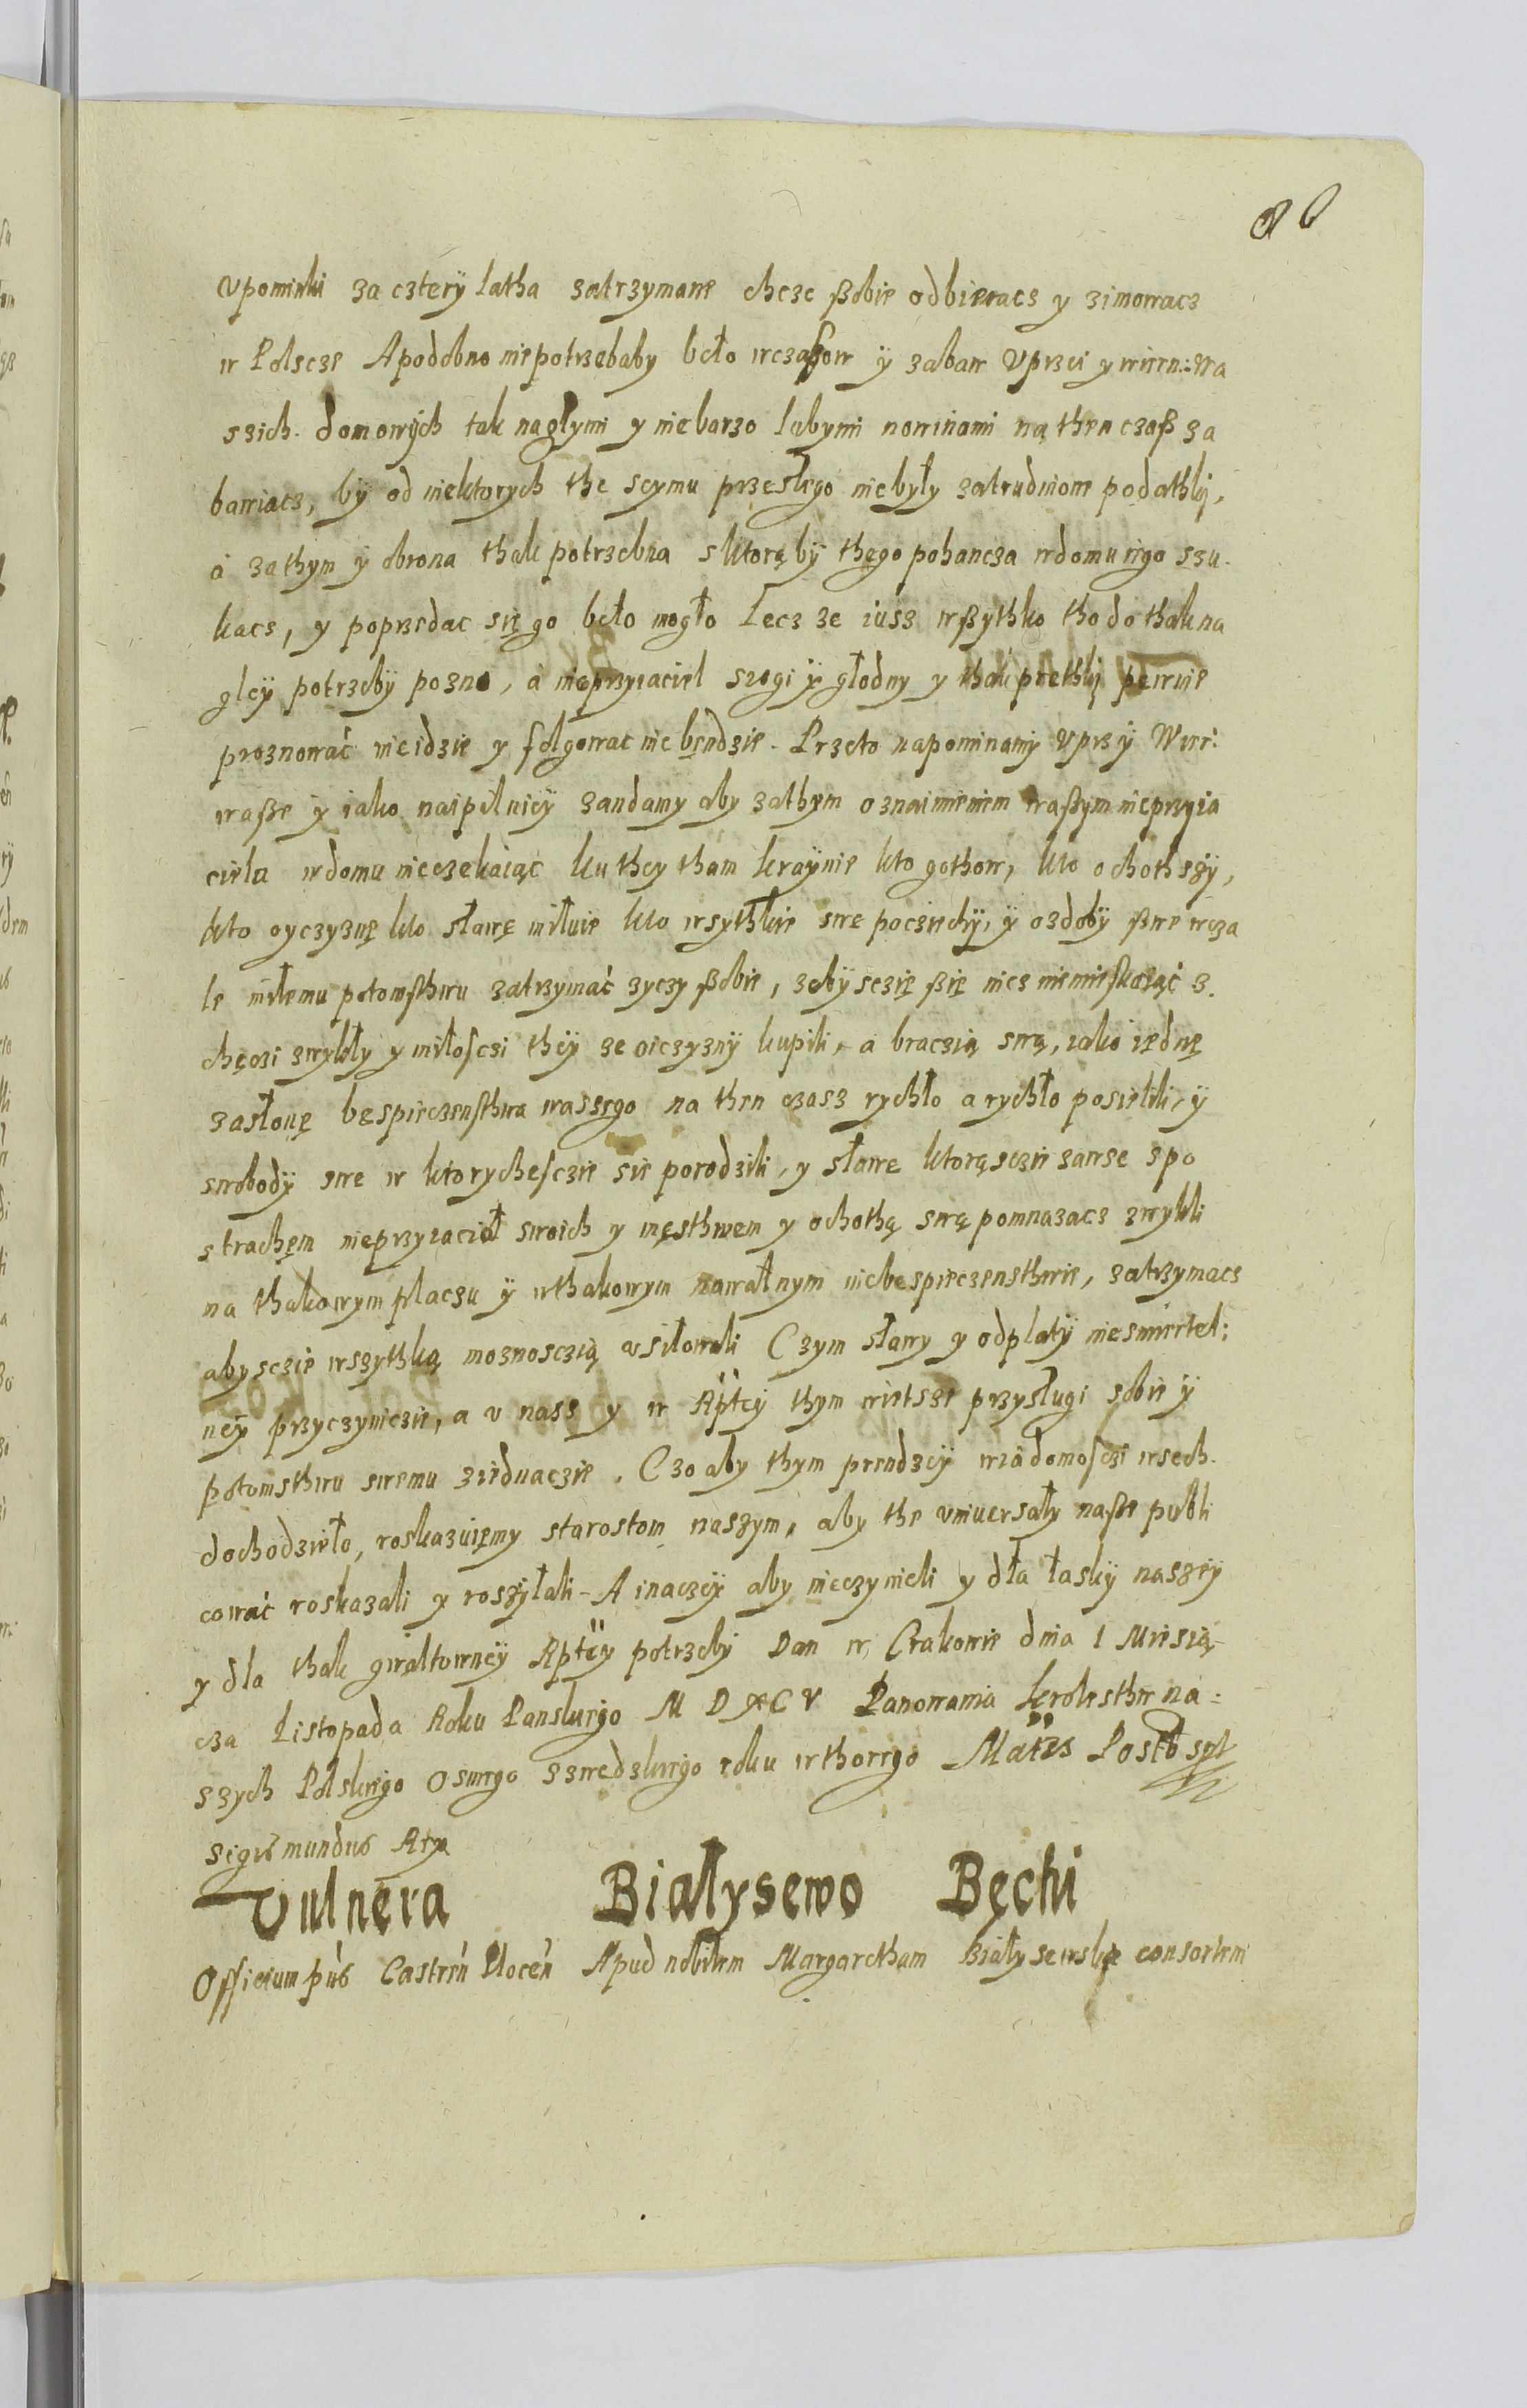 Vpominki za cztery latha zatrzymane chcze ßobie odbieracz y zimowacz
w Polscze Apodobno niepotrzebaby beło wczaßow ÿ zabaw Vprzei y wiern: Wa
szich. domowÿch tak nagłymi y niebarzo lubymi nowinami na then czaß za
bawiacz, bÿ od niektorych the seymu przeslego niebyły zatrudnione podathkj,
á zathym ÿ obrona thak potrzebna sktorą bÿ thego pohancza wdomu iego szu-
kacs, y poprzedac się go beło mogło Lecz ze iusz wßythko tho do thak na
gleÿ potrzebÿ pozno, á nieprzyiaciel srogi ÿ głodny y thak prethkj pewnie
proznowáć nieidzie y folgowac nie bęndzie. Przeto napominamÿ Vprz ÿ Wier:
waße ÿ iako naipilnieÿ zandamy aby zathym oznaimieniem waßym nieprzyia
ciela wdomu nieczekaiąc ku they tham kraÿnie kto gothow, kto ochothszÿ,
kto oyczyznę kto sławę miłuie kto wsythkie swe pociechÿ, ÿ ozdobÿ ßwe wcza
le miłemu potomsthwu zatrzymáć zyczy ßobie, zebÿsczie ßię nicz niemieskaiąć z
chęczi zwykły y miłosczi theÿ ze oiczyznÿ kupili, a braczią swą, iako iednę
zasłonę bespieczensthwa wassego na then czasz rychło a rychło posielili, ÿ
swobodÿ swe w ktorychesczie sie porodzili, y sławe ktorąsczie zawse spo
strachem nieprzyiaciół swoich y męsthwem y ochothą swą pomnazacz zwykli
na thakowym placzu ÿ wthakowym nawałnym niebespieczensthwie, zatrzymacz
abysczie wszythką moznosczią vsiłowali Czym sławy y odplatÿ niesmiertel:
neÿ przyczyniczie, a v nass y w Rptej thym wietsze przysługi sobie ÿ
potomsthwu swemu ziednaczie. Czo aby thym prendzeÿ wiadomosczi wsech.
dochodzieło, roskazuiemy starostom naszym, aby the vniuersały naße publi
cowáć roskazali y roszÿłali - A inaczeÿ aby nieczynieli y dla łaskÿ naszeÿ
y dla thak gwałtowneÿ Rptey potrzebÿ Dan w Crakowie dnia 1 Miesią-
cza Listopada Roku Panskiego M D XC V Panowania krolesthw na:
szych Polskiego Osmego szwedzkiego roku wthorego
Sigismundus Rex
Vulnera Białysewo Bęchi
Officium Castren Plocen Apud nobilem Margaretham Białysewskę consortem